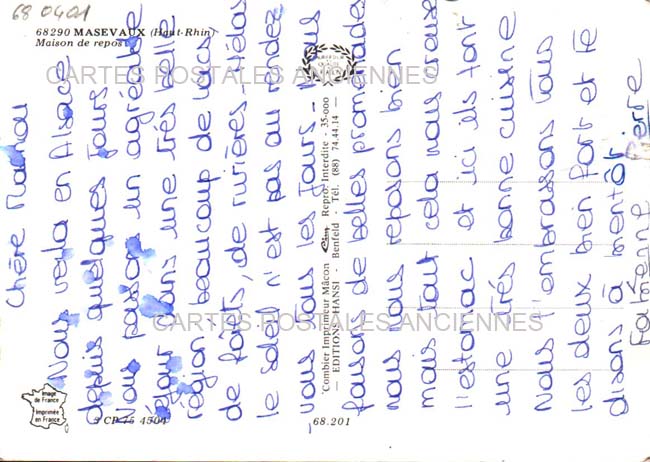 68 0401
68290 MASEVAUX (Haut-Rhin)
Maison de repos
CARTES POSTALES ANCIENNES
Chère Mamou
Nous voila en Alsace
depuis quelques Jours
Nous passons un agréable
séjour dans une très belle
région beaucoup de lacs
de forêts, de rivières, Hélas
le soleil n'est pas au rendez
vous tous les jours - Nous
faisons de belles promenades
nous nous reposons bien
mais tout cela nous creuse
l'estomac et ici ils font
une très bonne cuisine
Nous t'embrassons tous
les deux bien fort et te
disons à bientôt
Fabienne Pierre
Combier Imprimeur Mâcon Cim Repro. Interdite - 35-000
— EDITIONS HANSI - Benfeld - Tél. (88) 74.44.14 —
CARTES POSTALES ANCIENNES
Image
de France
Imprimée
en France
CP 75 4504
68.201